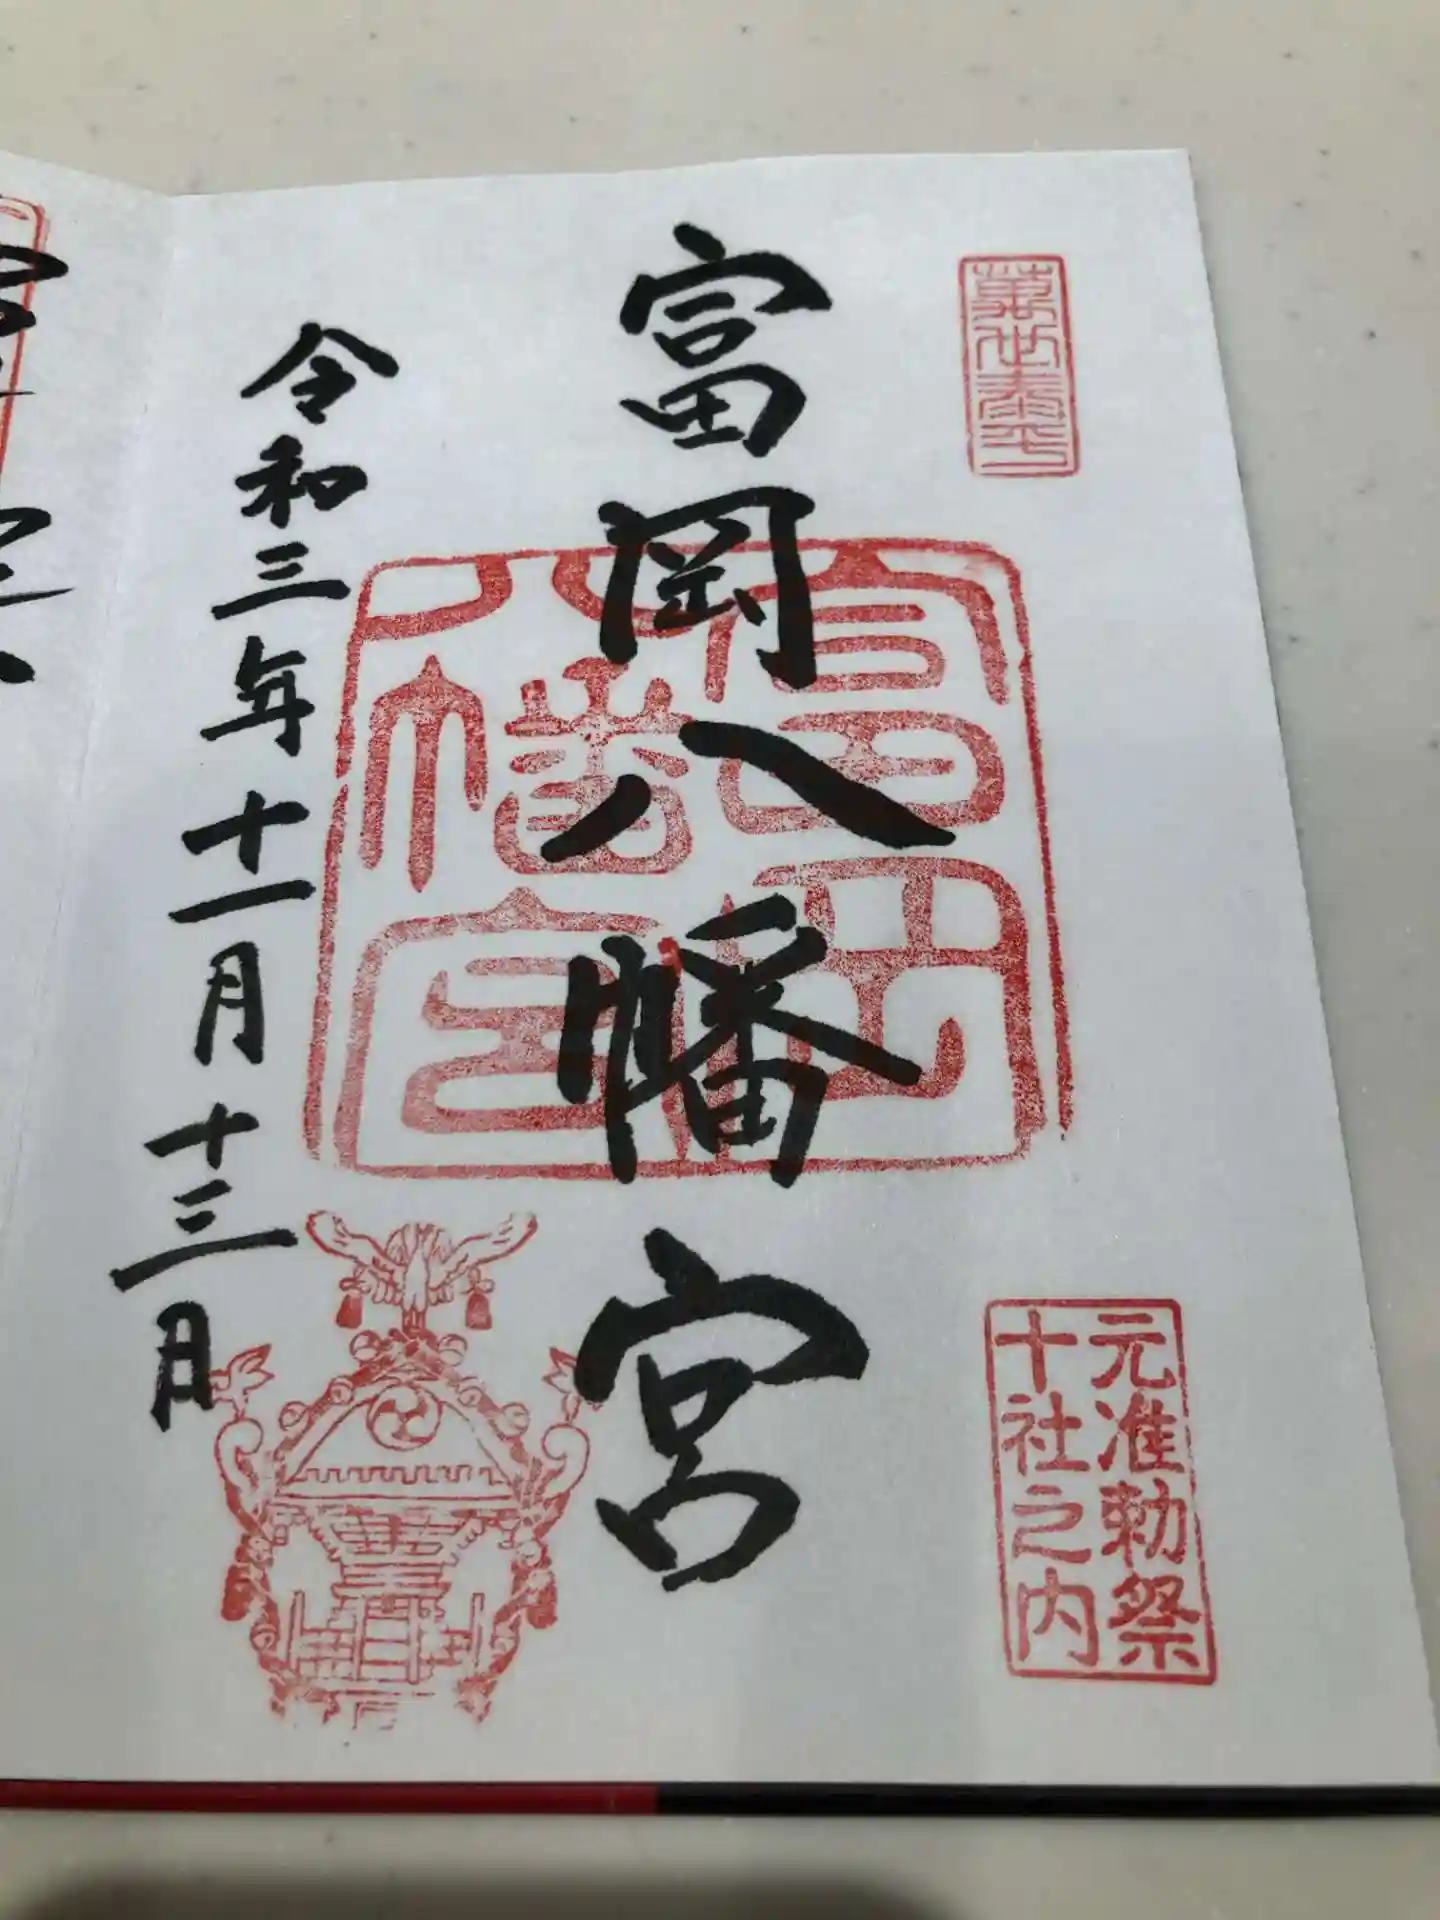 萬世泰平
元准勅祭
十社之内
富岡八幡宮
富岡
八幡宮
令和三年十一月十三日